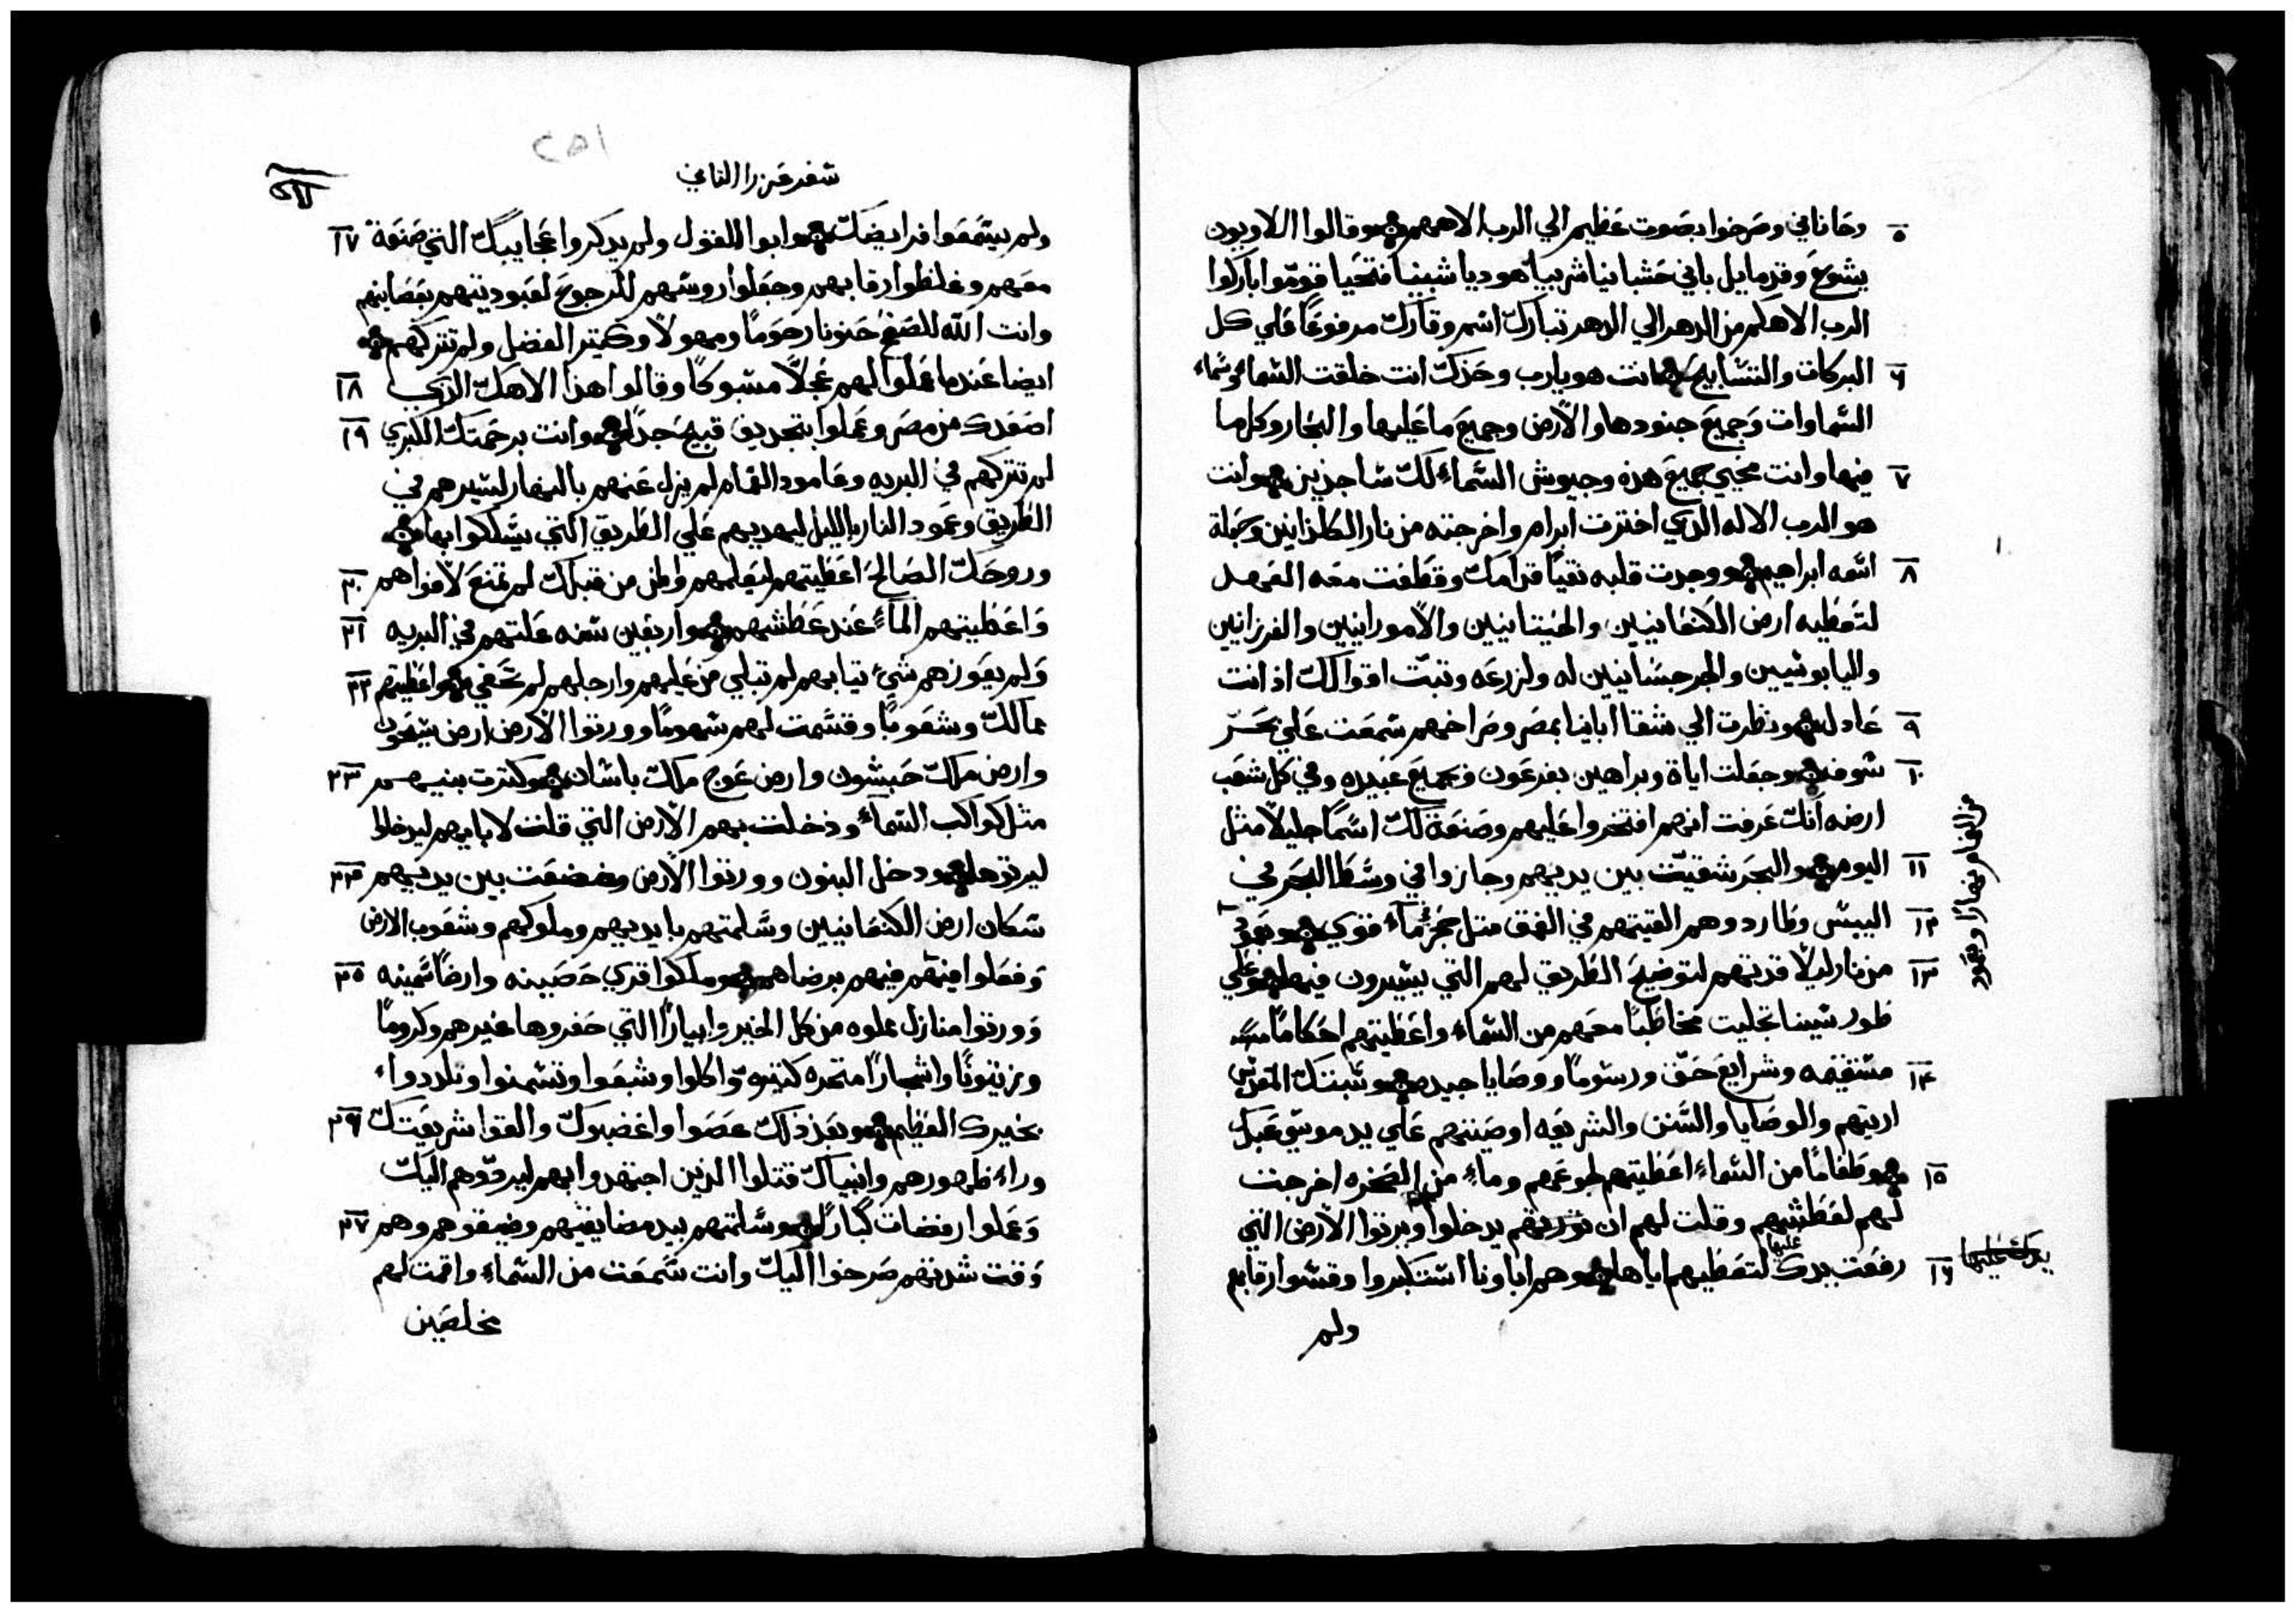 ٥ وحاناني وصرخوا بصوت عظيم الي الرب الاههم وقالوا اللاويون
يشوع وقدمايل باني حشبانيا شربيا هوديا شبنيا فتحيا قوموا باركوا
الرب الاهكم من الدهر الي الدهر تبارك اسم وقارك مرفوعا علي كل
٦ البركات والتسابيح انت هو يارب وحدك انت خلقت السماء وسماء
السماوات وجميع جنودها والارض وجميع ما عليها والبحار وكلما
٧ فيها وانت محيي جميع هذه وجيوش السماء لك ساجدين وانت
هو الرب الاله الذي اخترت ابرام واخرجته من نار الكلدانيين وجعلت
٨ اسمه ابراهيم ووجدت قلبه نقيا قدامك وقطعت معه العهد
لتعطيه ارض الكنعانيين والحيتانيين والامورانيين والفرزانيين
واليابوسيين والجرجسانيين له ولزرعه وتبت اقوالك اذ انت
٩ عادل ونظرت الي شقا ابائنا بمصر وصراخهم سمعت علي بحر
١٠ سوف وجعلت اياة وبراهين بفرعون وبجميع عبيده وفي كل شعب
ارضه انك عرفت انهم افتخروا عليهم وصنعة لك اسما جليلا مثل
١١ اليوم والبحر شقيت بين يديهم وجازوا في وسط البحر في
١٢ اليبس وطاردوهم القيتهم في العمق متل حجر بماء قوي وبعمود
من الغمام نهارا وبعمود
١٣ من نار ليلا قدتهم لتوضيح الطريق لهم التي يسيرون فيها وعلي
طور سينا تجليت مخاطبا معهم من السماء واعطيتهم احكاما
١٤ مستقيمه وشرايع حق ورسوما ووصايا جيده وسبتك المقدس
اريتهم والوصايا والسنن والشريعه اوصيتهم علي يد موسي عبدك
١٥ وطعاما من السماء اعطيتهم لجوعهم وماء من الصخره اخرجت
لهم لعطشهم وقلت لهم ان يدخلوا ويرتوا الارض التي
١٦ رفعت يدك عليها لتعطيهم اياها وهم اباونا استكبروا وقسوا رقابهم
يدك عليها
ولم
سفر عزرا الثاني
٢٥١
ولم يسمعوا فرايضك وابوا القول ولم يدكروا عجايبك التي صنعة ١٧
معهم وغلظوا رقابهم وجعلوا روسهم للرجوع لعبوديتهم بعصاينهم
وانت الله للصفح حنونا رحوما ومهولا وكتير الفضل ولم تتركهم
ايضا عندما عملوا لهم عجلا مسبوكا وقالوا هذا الاهك الذي ١٨
اصعدك من مصر وعملوا بتجديف قبيح جدا وانت برحمتك الكبري ١٩
لم تتركهم في البريه وعامود الغمام لم يزل عنهم بالنهار ليسيرهم في
الطريق وعمود النار بالليل ليهديهم علي الطريق التي يسلكوا بها
وروحك الصالح اعطيتهم ليعلمهم والمن من قبلك لم تمنع لافواهم ٢٠
واعطيتهم الماء عند عطشهم واربعين سنه علتهم في البريه ٢١
ولم يعوزهم شيء تيابهم لم تبلي من عليهم وارجلهم لم تحفي واعطيتهم ٢٢
ممالك وشعوبا وقسمت لهم سهوما وورتوا الارض ارض سيحون
وارض ملك حبشون وارض عوج ملك باشان وكترت بنيهم ٢٣
مثل كواكب السماء ودخلت بهم الارض التي قلت لابايهم ليدخلوا
ليرتوها ودخل البنون وورتوا الارض وضعضعت بين يديهم ٢٤
سكان ارض الكنعانيين وسلمتهم بايديهم وملوكهم وشعوب الارض
وفعلوا فيهم برضاهم وملكوا قري حصينه وارضا سمينه ٢٥
وورتوا منازل مملوه من كل الخير وابيارا التي حفروها غيرهم وكروما
وزيتونا واشجارا متمره كتيره واكلوا وشبعوا وتسمنوا وتلددوا
بخيرك العظيم وبعد ذلك عصوا واغضبوك والقوا شريعتك ٢٦
وراء ظهورهم وانبياك قتلوا الذين اجتهدوا بهم ليردوهم اليك
وعملوا رفضات كبارا وسلمتهم بيد مضايقيهم وضيقوهم وهم ٢٧
وقت شدتهم صرخوا اليك وانت سمعت من السماء واقمت لهم
مخلصين